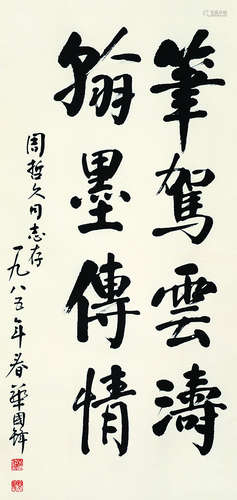 筆駕雲濤
翰墨傳情
周哲久同志存
一九八五年春 華國鋒